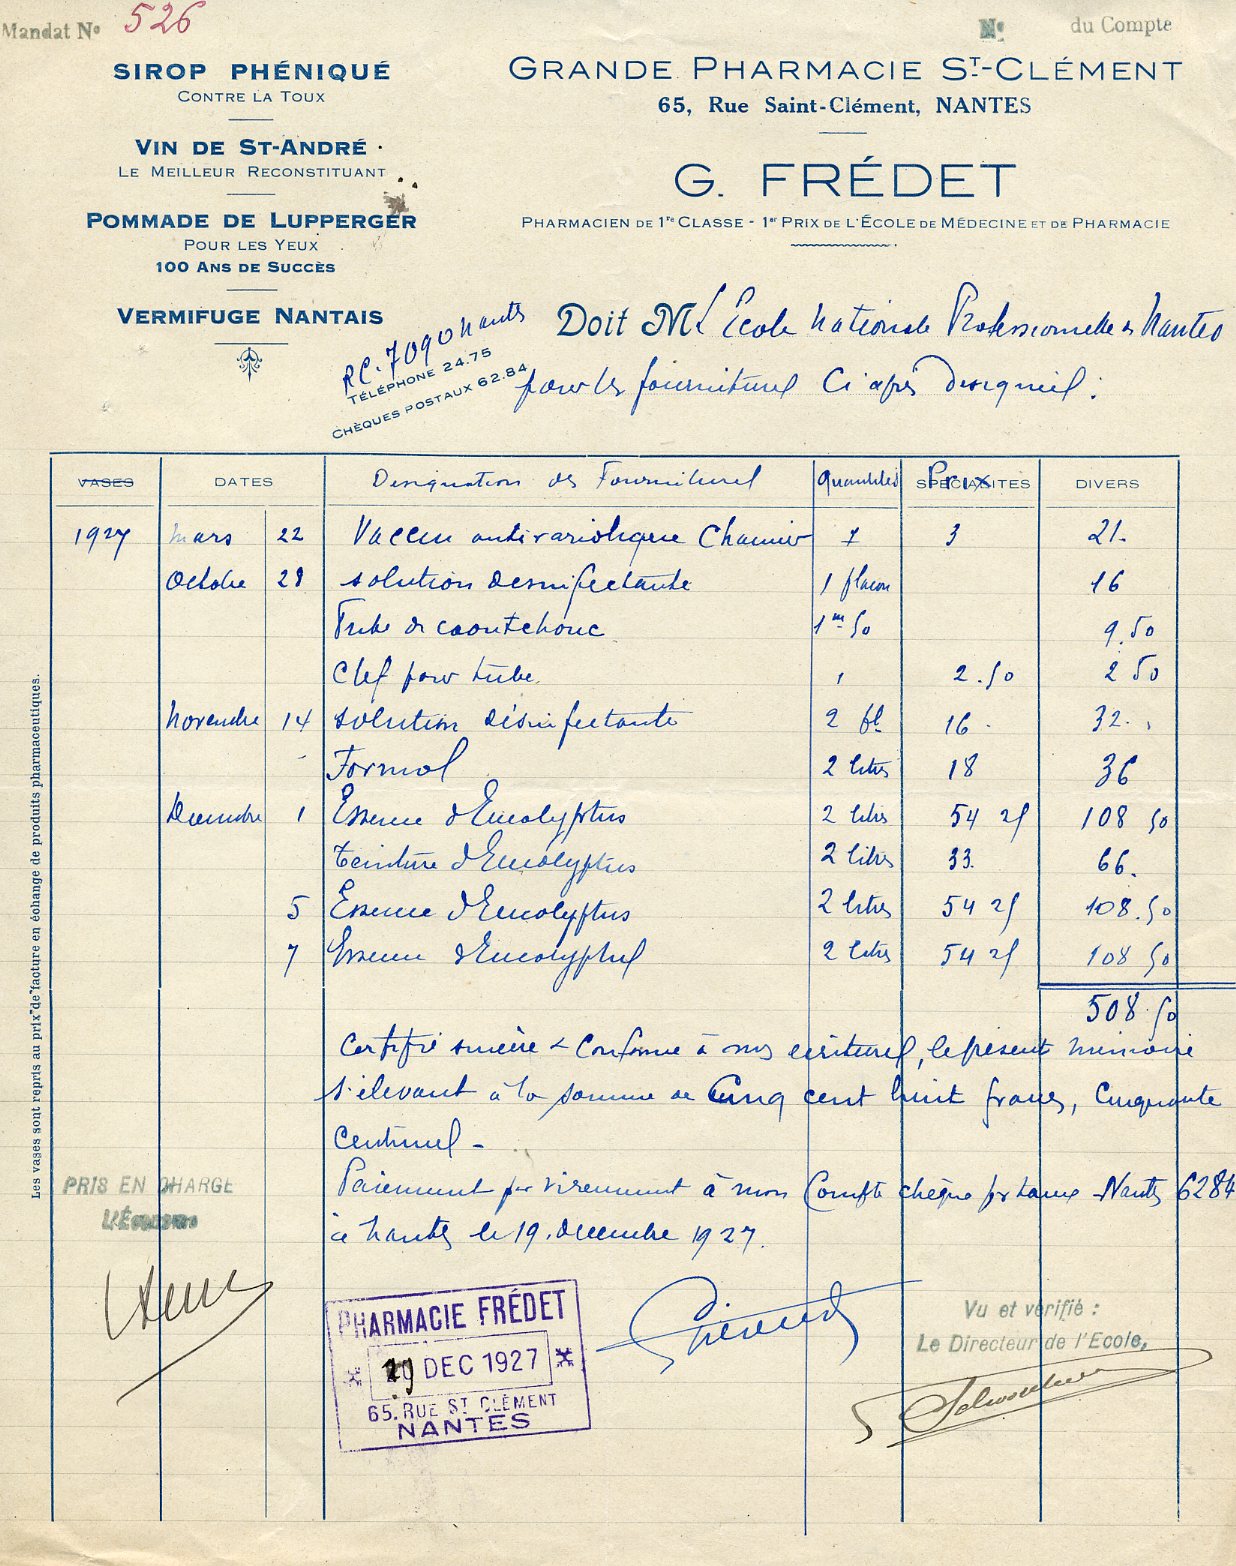 Mandat N° 526
N° du Compte
SIROP PHÉNIQUÉ
CONTRE LA TOUX
VIN DE ST-ANDRÉ
LE MEILLEUR RECONSTITUANT
POMMADE DE LUPPERGER
POUR LES YEUX
100 ANS DE SUCCÈS
VERMIFUGE NANTAIS
GRANDE PHARMACIE ST-CLÉMENT
65, Rue Saint-Clément, NANTES
G. FRÉDET
PHARMACIEN DE 1re CLASSE - 1er PRIX DE L'ÉCOLE DE MÉDECINE ET DE PHARMACIE
RC. 7090 Nantes
TÉLÉPHONE 24.75
CHÈQUES POSTAUX 62.84
Doit M L'École Nationale Professionnelle de Nantes
pour les fournitures ci après désignées :
VASES DATES Designation des Fournitures Quantités SPÉCIALITÉS Prix DIVERS
1927 mars 22 Vaccin antivariolique 7 3 21.
Octobre 28 solution desinfectante 1 flacon 16
Tube de caoutchouc 1m 50 9.50
Clef pour tube 1 2.50 2 50
Novembre 14 solution désinfectante 2 fl. 16 32.
Formol 2 litres 18 36
Decembre 1 Essence d'Eucalyptus 2 litres 54 25 108 50
Teinture d'Eucalyptus 2 litres 33. 66.
5 Essence d'Eucalyptus 2 litres 54 25 108.50
7 Essence d'Eucalyptus 2 litres 54 25 108 50
508.50
Certifié sincère & conforme à mes écritures, le présent mémoire
s'élevant à la somme de Cinq cent huit francs, cinquante
centimes -
Paiement par virement à mon Compte chèque postaux Nantes 6284
à Nantes le 19 decembre 1927.
PRIS EN CHARGE
L'Économe
PHARMACIE FRÉDET
19 DEC 1927
65. RUE ST CLÉMENT
NANTES
Vu et vérifié :
Le Directeur de l'Ecole,
Les vases sont repris au prix de facture en échange de produits pharmaceutiques.